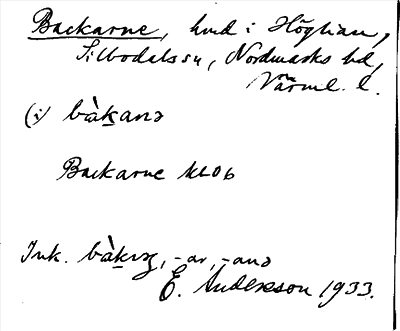 Backarne, hmd i Höglian,
Silbodals sn, Nordmarks hd,
Värml. l.
(i) bàk̠anə
Backarne
Ink. bàk̠ɪʒ, -ar, -anə
E. Anderson 1933.